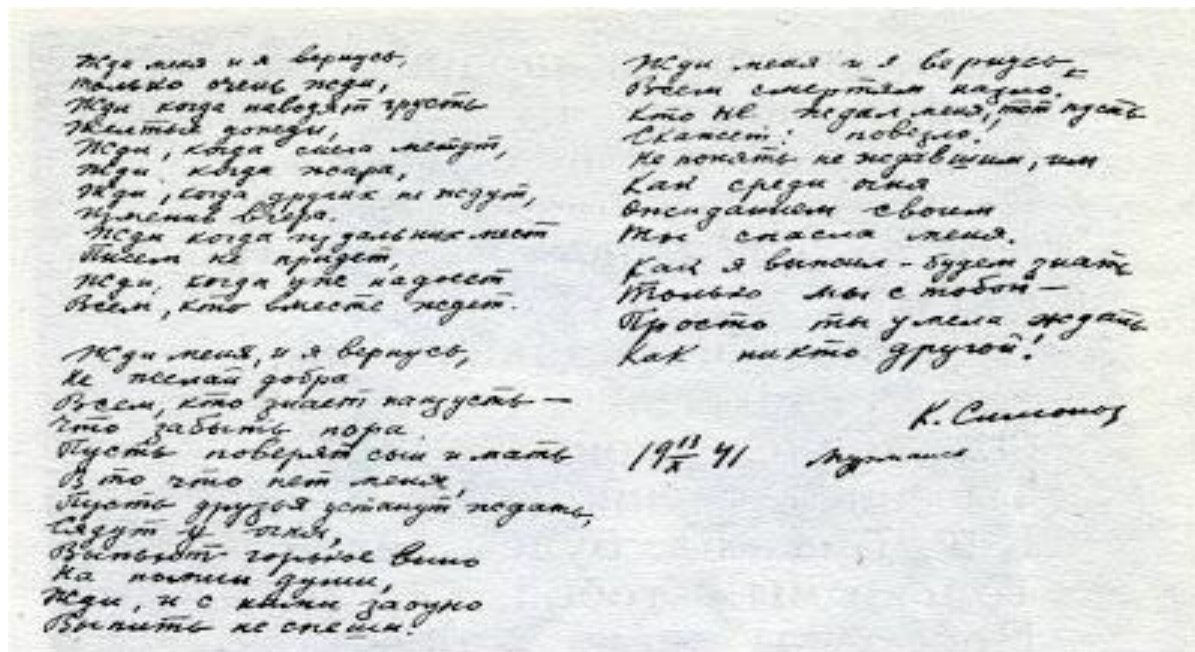 Жди меня и я вернусь,
только очень жди,
Жди когда наводят грусть
Желтые дожди,
Жди, когда снега метут,
Жди когда жара,
Жди, когда других не ждут,
Изменив вчера.
Жди когда из дальних мест
Писем не придет,
Жди, когда уже надоест
Всем, кто вместе ждет.
Жди меня, и я вернусь,
Не желай добра
Всем, кто знает наизусть —
Что забыть пора.
Пусть поверят сын и мать
В то что нет меня,
Пусть друзья устанут ждать,
Сядут у огня,
Выпьют горькое вино
На помин души,
Жди, и с ними заодно
Выпить не спеши.
Жди меня и я вернусь
Всем смертям назло.
Кто не ждал меня, тот пусть
Скажет: повезло.
Не понять не ждавшим, им
Как среди огня
Ожиданием своим
Ты спасла меня.
Как я выжил – будем знать
Только мы с тобой —
Просто ты умела ждать
Как никто другой!
К. Симонов
19 13/X 41 Мурманск